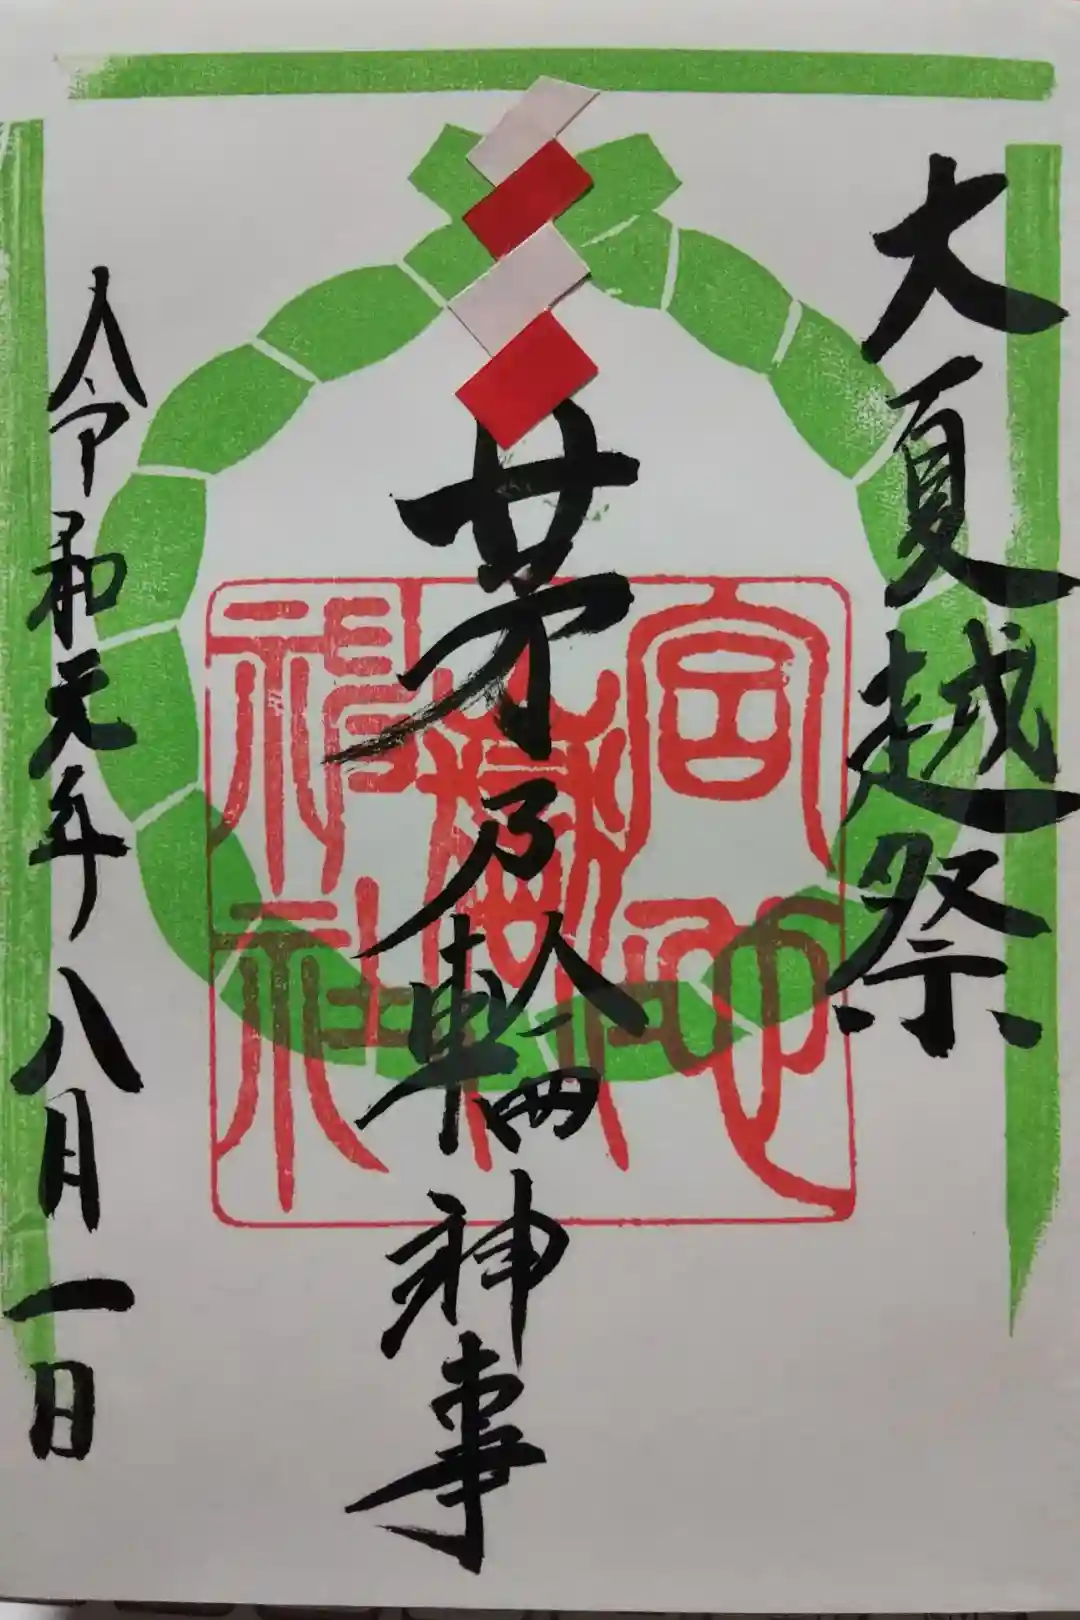 大夏越祭
茅乃輪神事
宮地
嶽
神社
令和元年八月一日